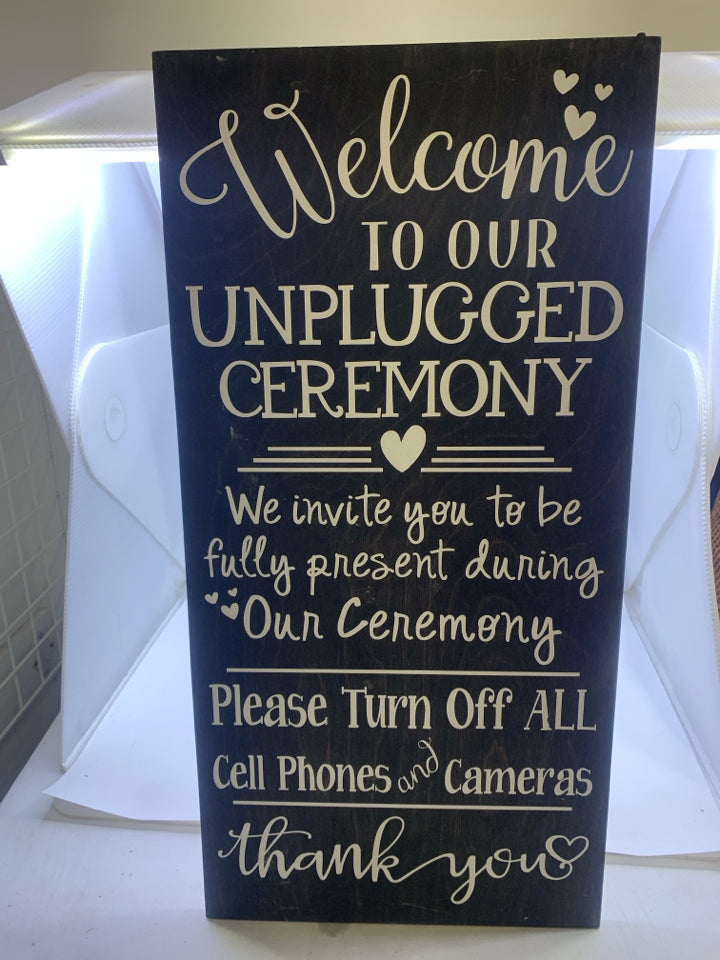 Welcome
TO OUR
UNPLUGGED
CEREMONY
We invite you to be
fully present during
Our Ceremony
Please Turn Off ALL
Cell Phones and Cameras
thank you